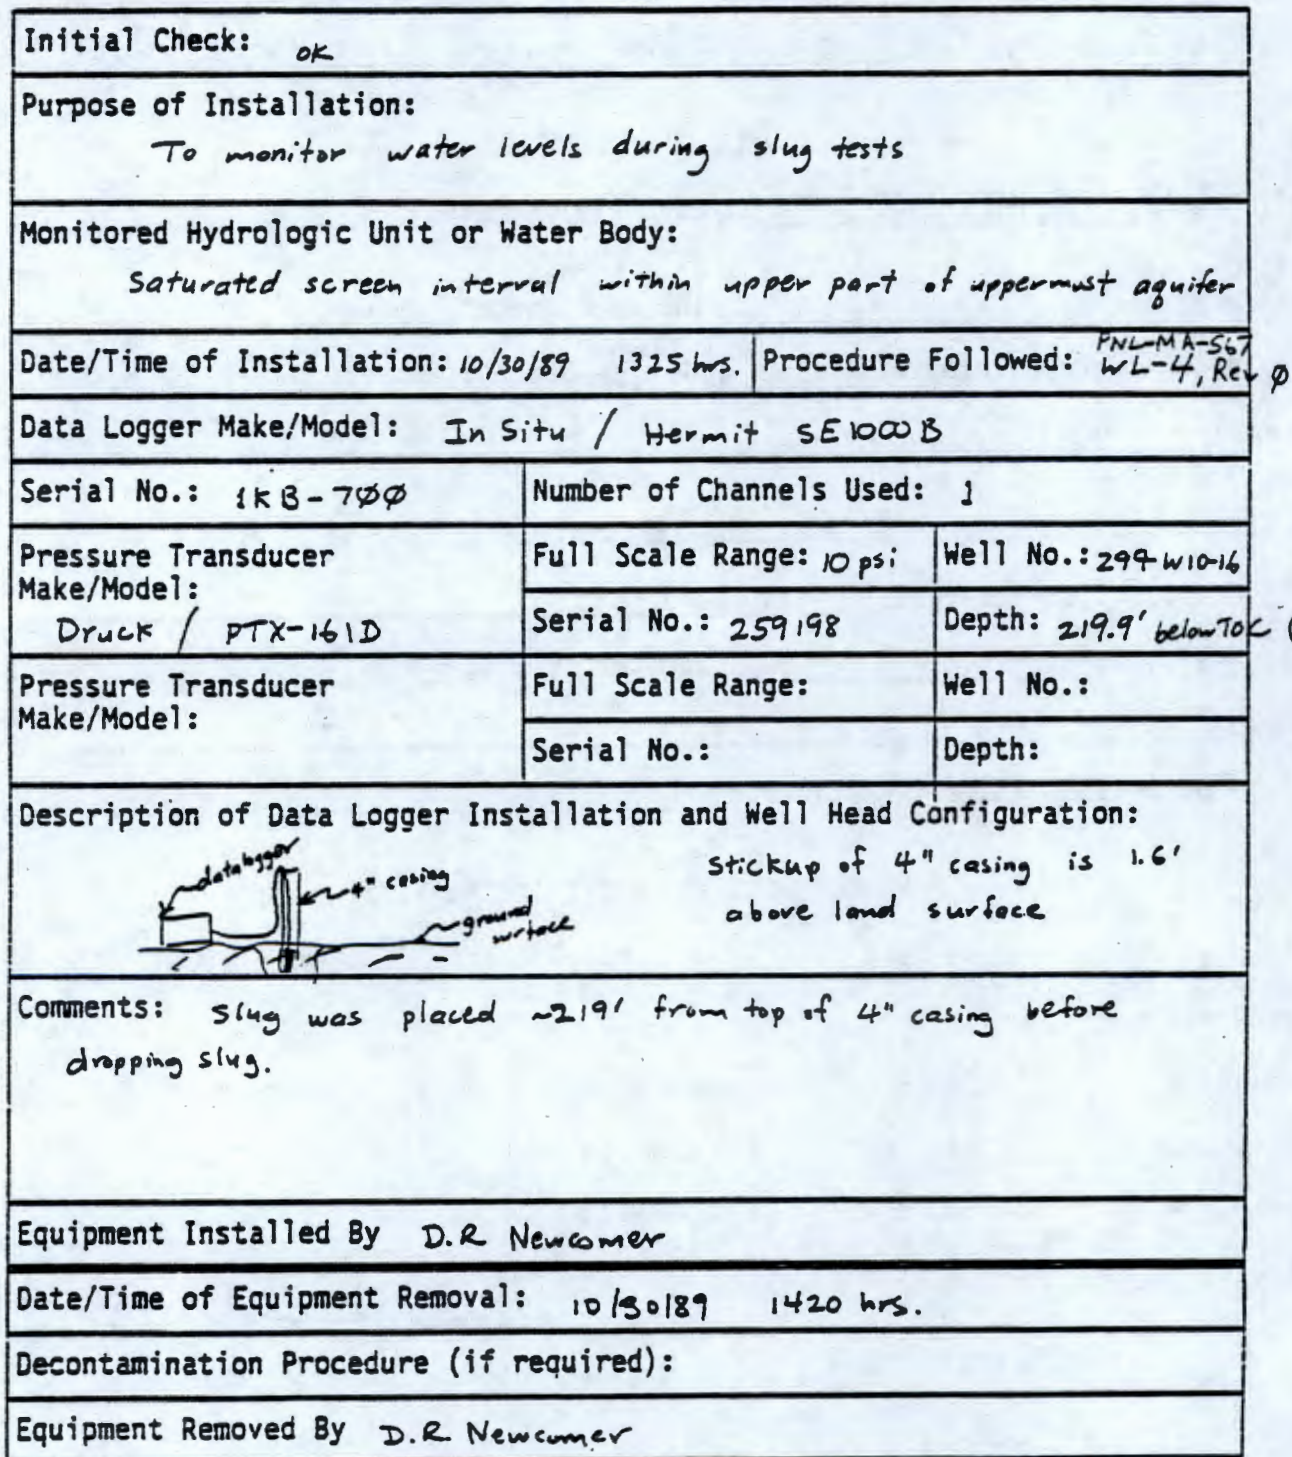 Initial Check: ok
Purpose of Installation:
To monitor water levels during slug tests
Monitored Hydrologic Unit or Water Body:
Saturated screen interval within upper part of uppermost aquifer
Date/Time of Installation: 10/30/89 1325 hrs. Procedure Followed: PNL-MA-567
WL-4, Rev Ø
Data Logger Make/Model: In Situ / Hermit SE1000B
Serial No.: 1KB-7ØØ Number of Channels Used: 1
Pressure Transducer Full Scale Range: 10 psi Well No.: 299-W10-16
Make/Model:
Druck / PTX-161D Serial No.: 259198 Depth: 219.9' below TOC (
Pressure Transducer Full Scale Range: Well No.:
Make/Model:
Serial No.: Depth:
Description of Data Logger Installation and Well Head Configuration:
datalogger
4" casing
ground
surface
stickup of 4" casing is 1.6'
above land surface
Comments: Slug was placed ~219' from top of 4" casing before
dropping slug.
Equipment Installed By D.R Newcomer
Date/Time of Equipment Removal: 10/30/89 1420 hrs.
Decontamination Procedure (if required):
Equipment Removed By D.R. Newcomer